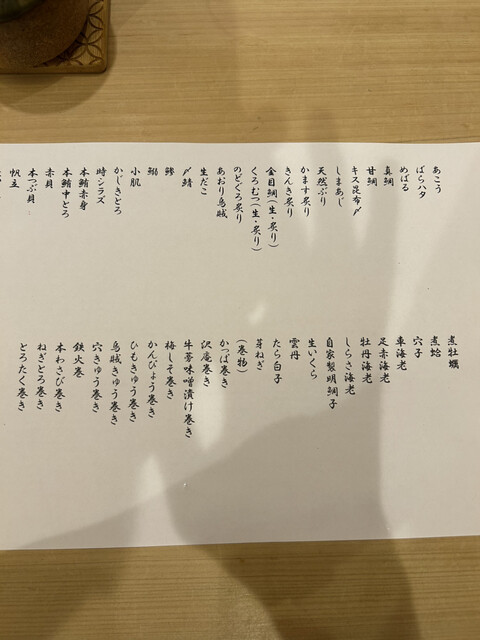 あこう
ばらハタ
めばる
真鯛
甘鯛
キス昆布〆
しまあじ
天然ぶり
かます炙り
きんき炙り
金目鯛(生・炙り)
くろむつ(生・炙り)
のどぐろ炙り
あおり烏賊
生だこ
〆鯖
鯵
鰯
小肌
かじきとろ
時シラズ
本鮪赤身
本鮪中とろ
赤貝
本つぶ貝
帆立
煮牡蠣
煮蛤
穴子
車海老
足赤海老
牡丹海老
しらさ海老
自家製明鯛子
生いくら
雲丹
たら白子
芽ねぎ
(巻物)
かっぱ巻き
沢庵巻き
牛蒡味噌漬け巻き
梅しそ巻き
かんぴょう巻き
ひもきゅう巻き
烏賊きゅう巻き
穴きゅう巻き
鉄火巻
本わさび巻き
ねぎとろ巻き
とろたく巻き